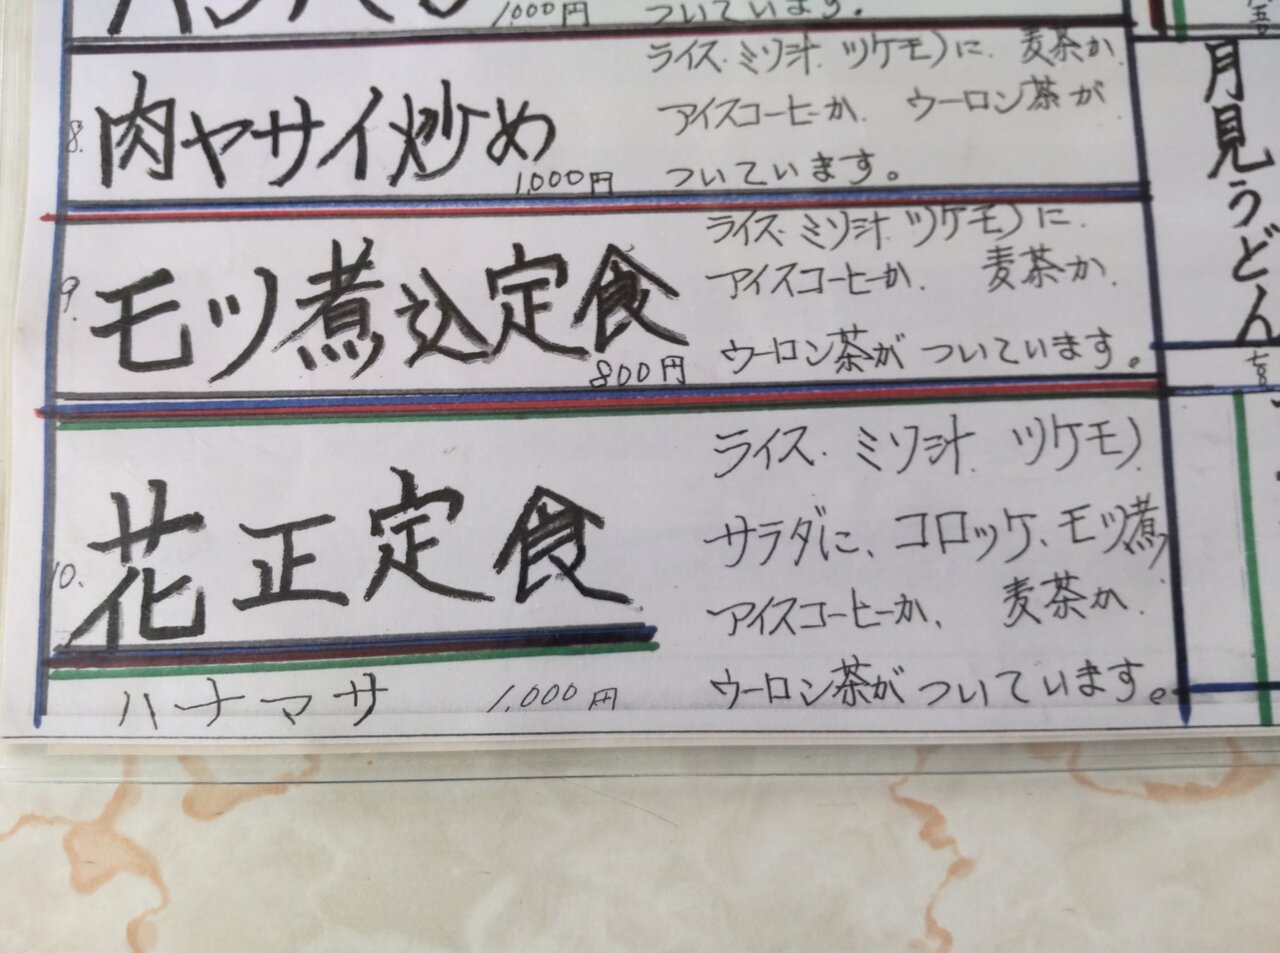 1,000円
ついています。
8.
肉ヤサイ炒め
1,000円
ライス. ミソ汁. ツケモノに. 麦茶か.
アイスコーヒーか. ウーロン茶が
ついています。
9.
モツ煮込定食
800円
ライス. ミソ汁 ツケモノに.
アイスコーヒーか. 麦茶か.
ウーロン茶が ついています。
10.
花正定食
ハナマサ
1,000円
ライス. ミソ汁. ツケモノ.
サラダに、コロッケ、モツ煮
アイスコーヒーか、 麦茶か.
ウーロン茶が ついています。
月見うどん